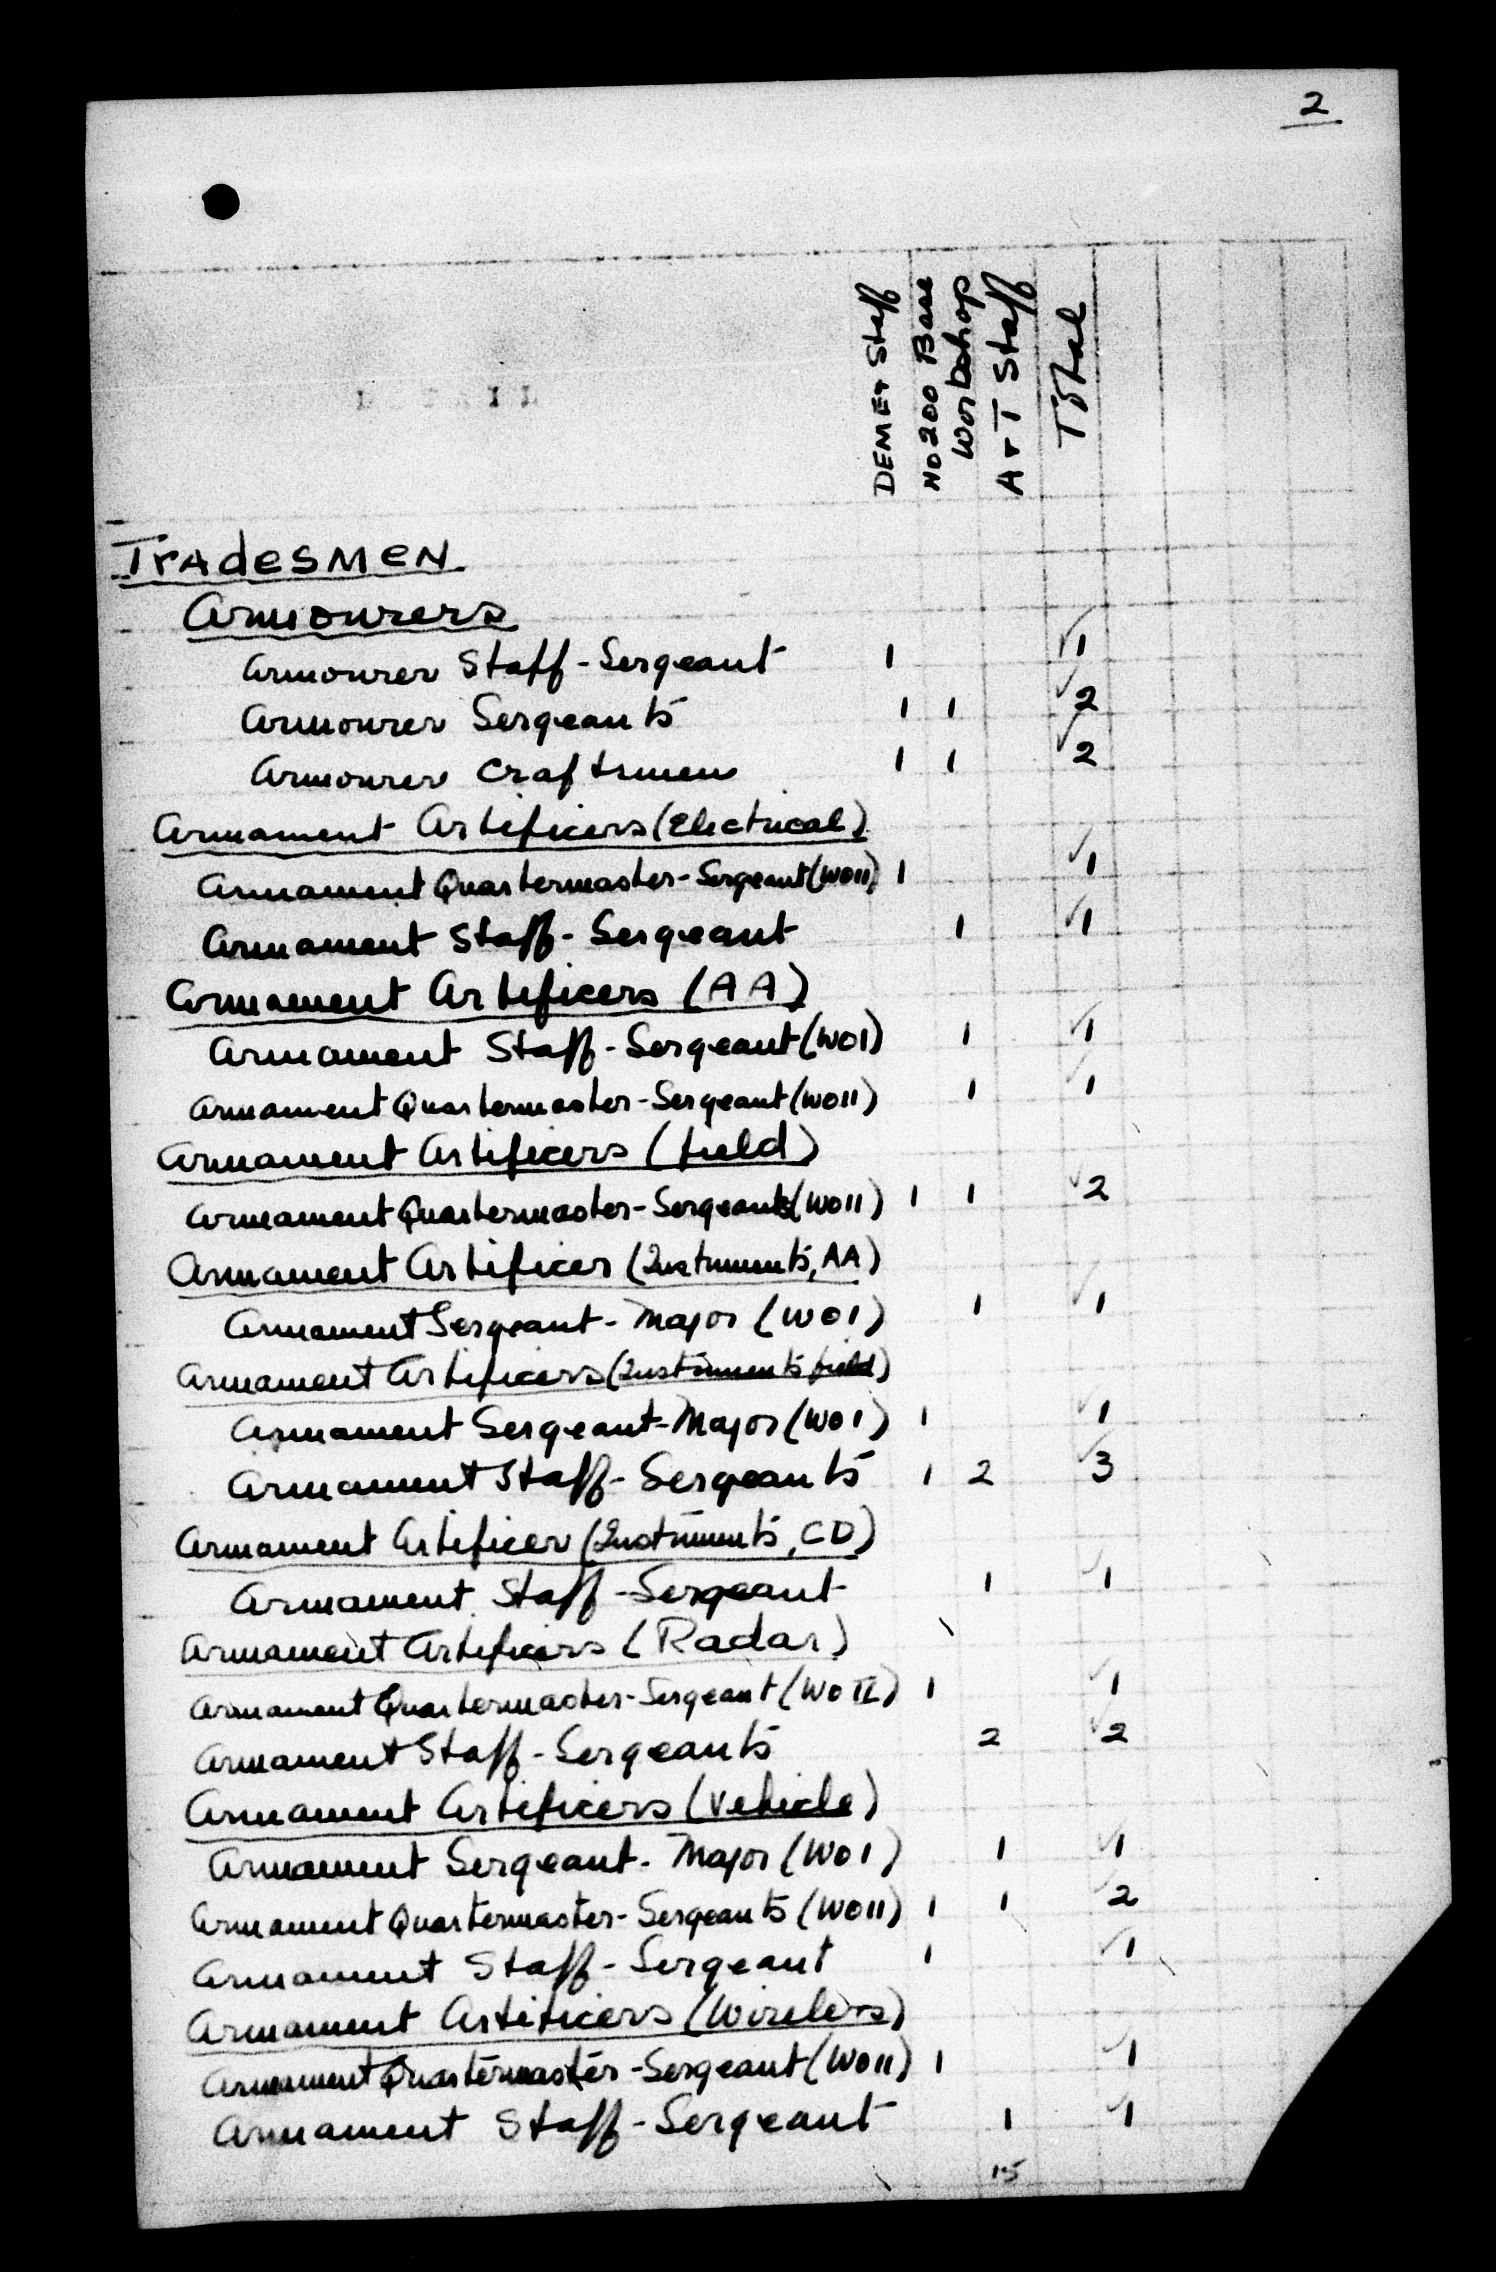 2
DEME+ Staff
No 200 Base
Workshop
A+T Staff
Total
TradesMeN
Armourers
Armourer Staff-Sergeant 1 ✓1
Armourer Sergeants 1 1 ✓2
Armourer Craftsmen 1 1 ✓2
Armament Artificers (Electrical)
Armament Quartermaster-Sergeant (WOII) 1 ✓1
Armament Staff-Sergeant 1 ✓1
Armament Artificers (AA)
Armament Staff-Sergeant (WOI) 1 ✓1
Armament Quartermaster-Sergeant (WOII) 1 ✓1
Armament Artificers (field)
Armament Quartermaster-Sergeants (WOII) 1 1 ✓2
Armament Artificer (Instruments, AA)
Armament Sergeant-Major (WOI) 1 ✓1
Armament Artificers (Instruments field)
Armament Sergeant-Major (WOI) 1 ✓1
Armament Staff-Sergeants 1 2 ✓3
Armament Artificer (Instruments, CD)
Armament Staff-Sergeant 1 ✓1
Armament Artificers (Radar)
Armament Quartermaster-Sergeant (WO II) 1 ✓1
Armament Staff-Sergeants 2 ✓2
Armament Artificers (Vehicle)
Armament Sergeant-Major (WOI) 1 ✓1
Armament Quartermaster-Sergeants (WOII) 1 1 ✓2
Armament Staff-Sergeant 1 ✓1
Armament Artificers (Wireless)
Armament Quartermaster-Sergeant (WOII) 1 ✓1
Armament Staff-Sergeant 1 ✓1
15